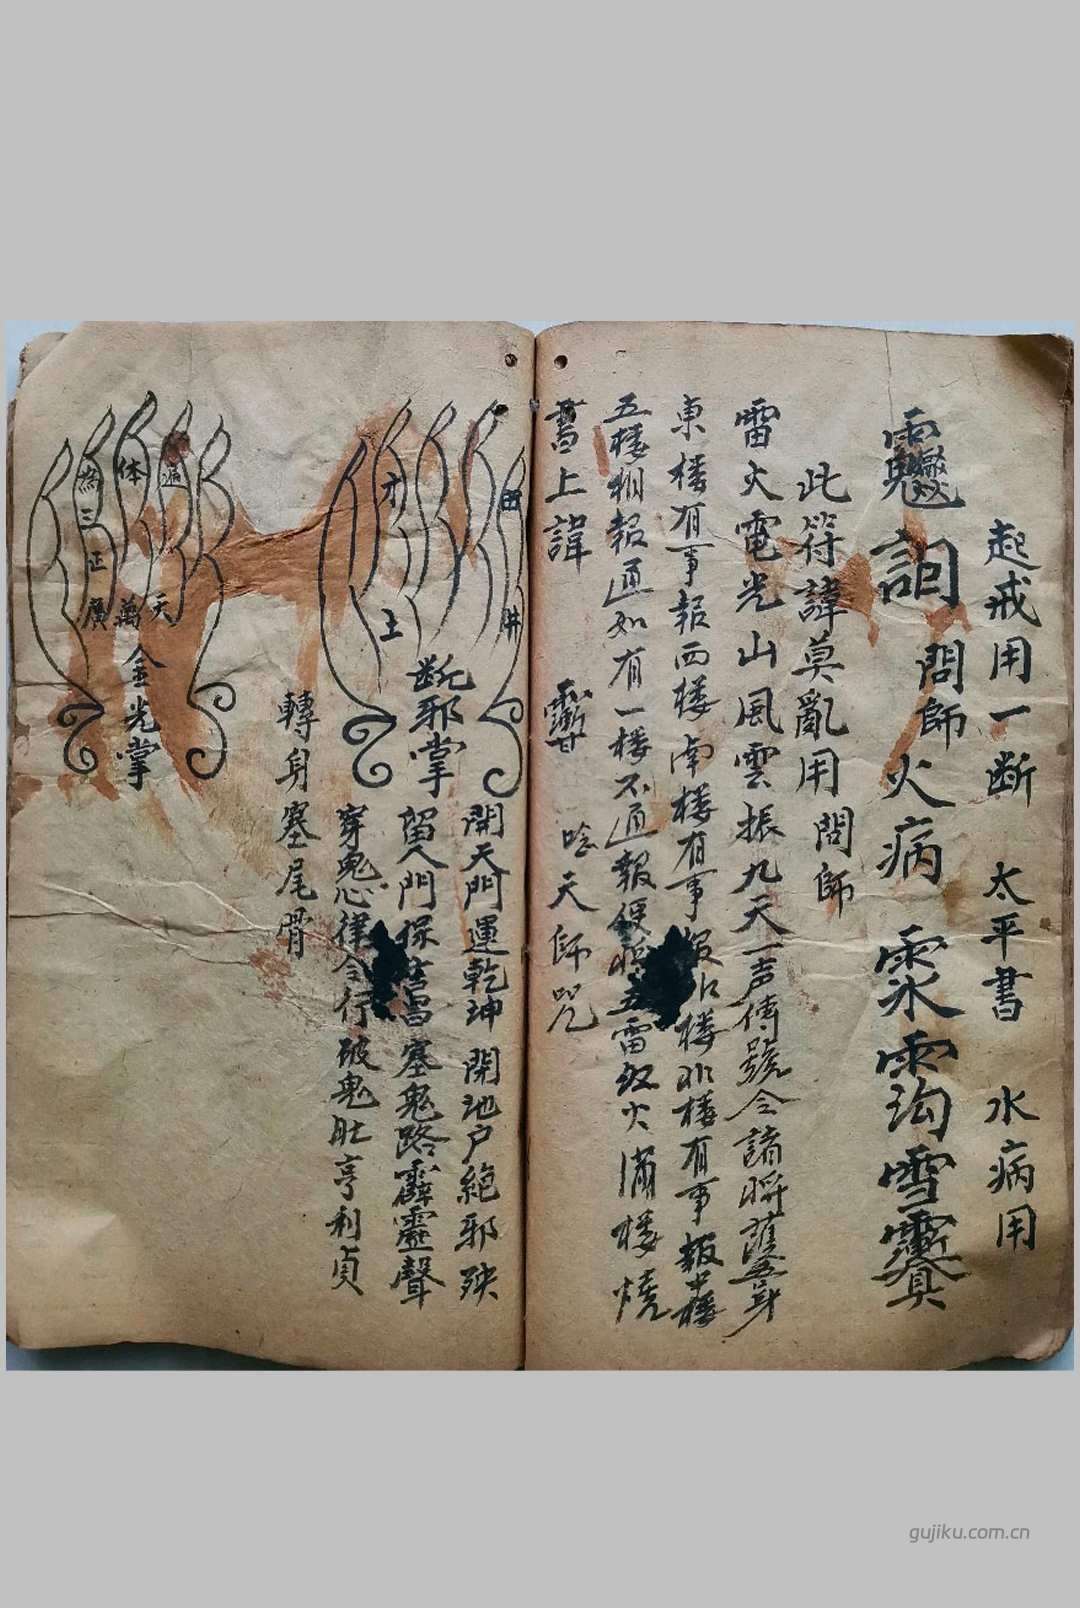 起戒用一断 太平書 水病用
問師火病
此符諱莫亂用問師
雷火電光山風雲振九天一声傳號令諸將護吾身
東楼有事報西楼南楼有事報北楼北楼有事報中楼
五楼相報通如有一楼不通報便將五雷紅火滿楼燒
書上諱 唸天師咒
田井
才土
断邪掌
開天門運乾坤 開地户絶邪殃
留人門保吉昌塞鬼路霹靂聲
穿鬼心律令行破鬼肚亨利貞
轉身塞尾骨
天
体萬
為三正廣
金光掌
gujiku.com.cn